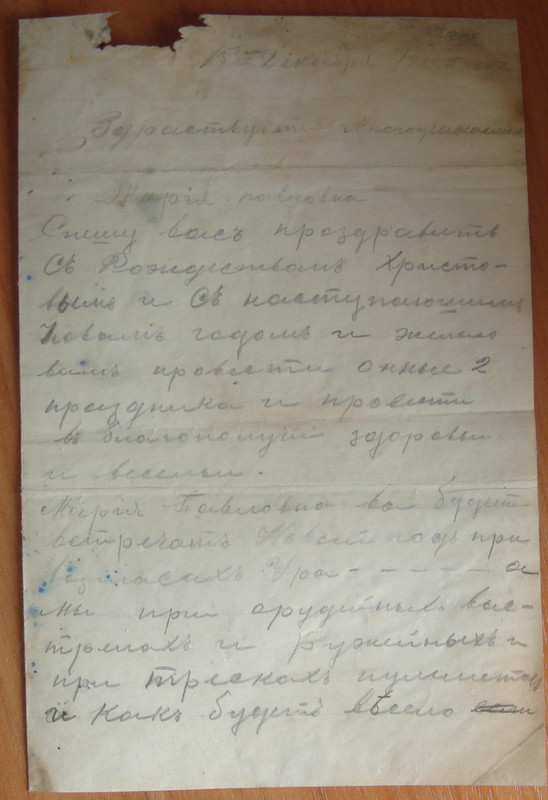 15го Декабря 191
Здраствуйте Многоуважаемая
Марiя павловна
Спешу васъ проздравить
Съ Рождествомъ Христо-
вымъ и Съ наступающимъ
Новамъ годомъ и желаю
вамъ провести онные 2
праздника и провести
въ благополучiи здоровьи
и весельи.
Марiя Павловна вы будете
встречать Новый годъ при
возгласахъ Ура - - - - - а
мы при орудейныхъ выс-
трелахъ и Ружейныхъ и
при трескахъ пулиметовъ
и какъ будетъ вѣсело